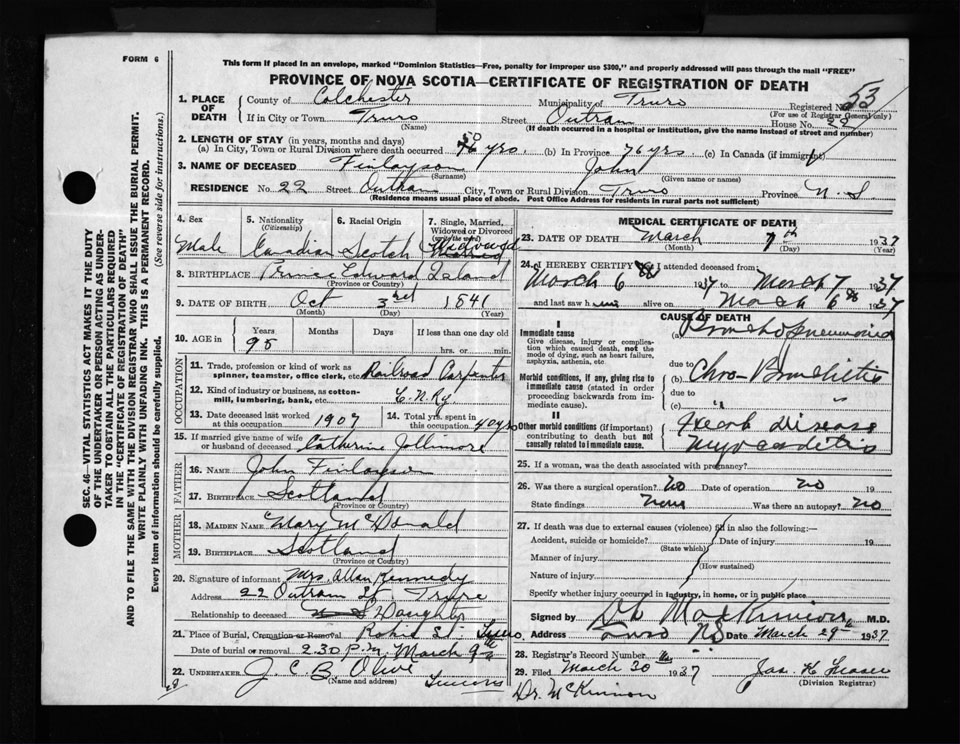 FORM 6
This form if placed in an envelope, marked "Dominion Statistics—Free, penalty for improper use $300," and properly addressed will pass through the mail "FREE"
PROVINCE OF NOVA SCOTIA—CERTIFICATE OF REGISTRATION OF DEATH
53
1. PLACE OF DEATH
County of Colchester Municipality of Truro Registered No.
(For use of Registrar General only)
If in City or Town Truro Street Outram House No. 22
(Name) (If death occurred in a hospital or institution, give the name instead of street and number)
2. LENGTH OF STAY (in years, months and days)
(a) In City, Town or Rural Division where death occurred 50 yrs. (b) In Province 76 yrs (c) In Canada (if immigrant)
3. NAME OF DECEASED Finlayson John
(Surname) (Given name or names)
RESIDENCE No. 22 Street Outram City, Town or Rural Division Truro Province N.S
(Residence means usual place of abode. Post Office Address for residents in rural parts not sufficient)
4. Sex
Male
5. Nationality
(Citizenship)
Canadian
6. Racial Origin
Scotch
7. Single, Married, Widowed or Divorced
Widowed
8. BIRTHPLACE Prince Edward Island
(Province or Country)
9. DATE OF BIRTH Oct 3rd 1841
(Month) (Day) (Year)
10. AGE in Years Months Days If less than one day old
95 hrs. or min.
OCCUPATION
11. Trade, profession or kind of work as spinner, teamster, office clerk, etc. Railroad Carpenter
12. Kind of industry or business, as cotton-mill, lumbering, bank, etc. C.N.Ry
13. Date deceased last worked at this occupation 1907
14. Total yrs. spent in this occupation 40 yrs
15. If married give name of wife or husband of deceased Cathrine Jollimore
FATHER
16. NAME John Finlayson
17. BIRTHPLACE Scotland
(Province or Country)
MOTHER
18. MAIDEN NAME Mary McDonald
19. BIRTHPLACE Scotland
(Province or Country)
20. Signature of informant Mrs. Allan Kennedy
Address 22 Outram St. Truro
Relationship to deceased Daughter
21. Place of Burial, Cremation or Removal Robie St. Truro
Date of burial or removal 2.30 P.M. March 9th
22. UNDERTAKER J.C.B. Olive
(Name and address) Truro NS
MEDICAL CERTIFICATE OF DEATH
23. DATE OF DEATH March 7th 1937
(Month) (Day) (Year)
24. I HEREBY CERTIFY I attended deceased from
March 6th 1937 to March 7 1937
and last saw him alive on March 6th 1937
CAUSE OF DEATH
I
Immediate cause
Give disease, injury or complication which caused death, not the mode of dying, such as heart failure, asphyxia, asthenia, etc.
(a) Bronchopneumonia
due to
Morbid conditions, if any, giving rise to immediate cause (stated in order proceeding backwards from immediate cause).
(b) Chro Bronchitis
due to
(c) " "
II
Other morbid conditions (if important) contributing to death but not causally related to immediate cause.
Heart disease
Myocarditis
25. If a woman, was the death associated with pregnancy?
26. Was there a surgical operation? No Date of operation no 19
State findings None Was there an autopsy? No
27. If death was due to external causes (violence) fill in also the following:
Accident, suicide or homicide? Date of injury 19
(State which)
Manner of injury
(How sustained)
Nature of injury
Specify whether injury occurred in industry, in home, or in public place
Signed by MacKinnon M.D.
Address Truro NS Date March 29th 1937
28. Registrar's Record Number
29. Filed March 30 1937 Jas. H.
(Division Registrar)
Dr. McKinnon
SEC. 46—VITAL STATISTICS ACT MAKES IT THE DUTY
OF THE UNDERTAKER OR PERSON ACTING AS UNDER-
TAKER TO OBTAIN ALL THE PARTICULARS REQUIRED
IN THE "CERTIFICATE OF REGISTRATION OF DEATH"
AND TO FILE THE SAME WITH THE DIVISION REGISTRAR WHO SHALL ISSUE THE BURIAL PERMIT.
WRITE PLAINLY WITH UNFADING INK. THIS IS A PERMANENT RECORD.
Every item of information should be carefully supplied. (See reverse side for instructions.)